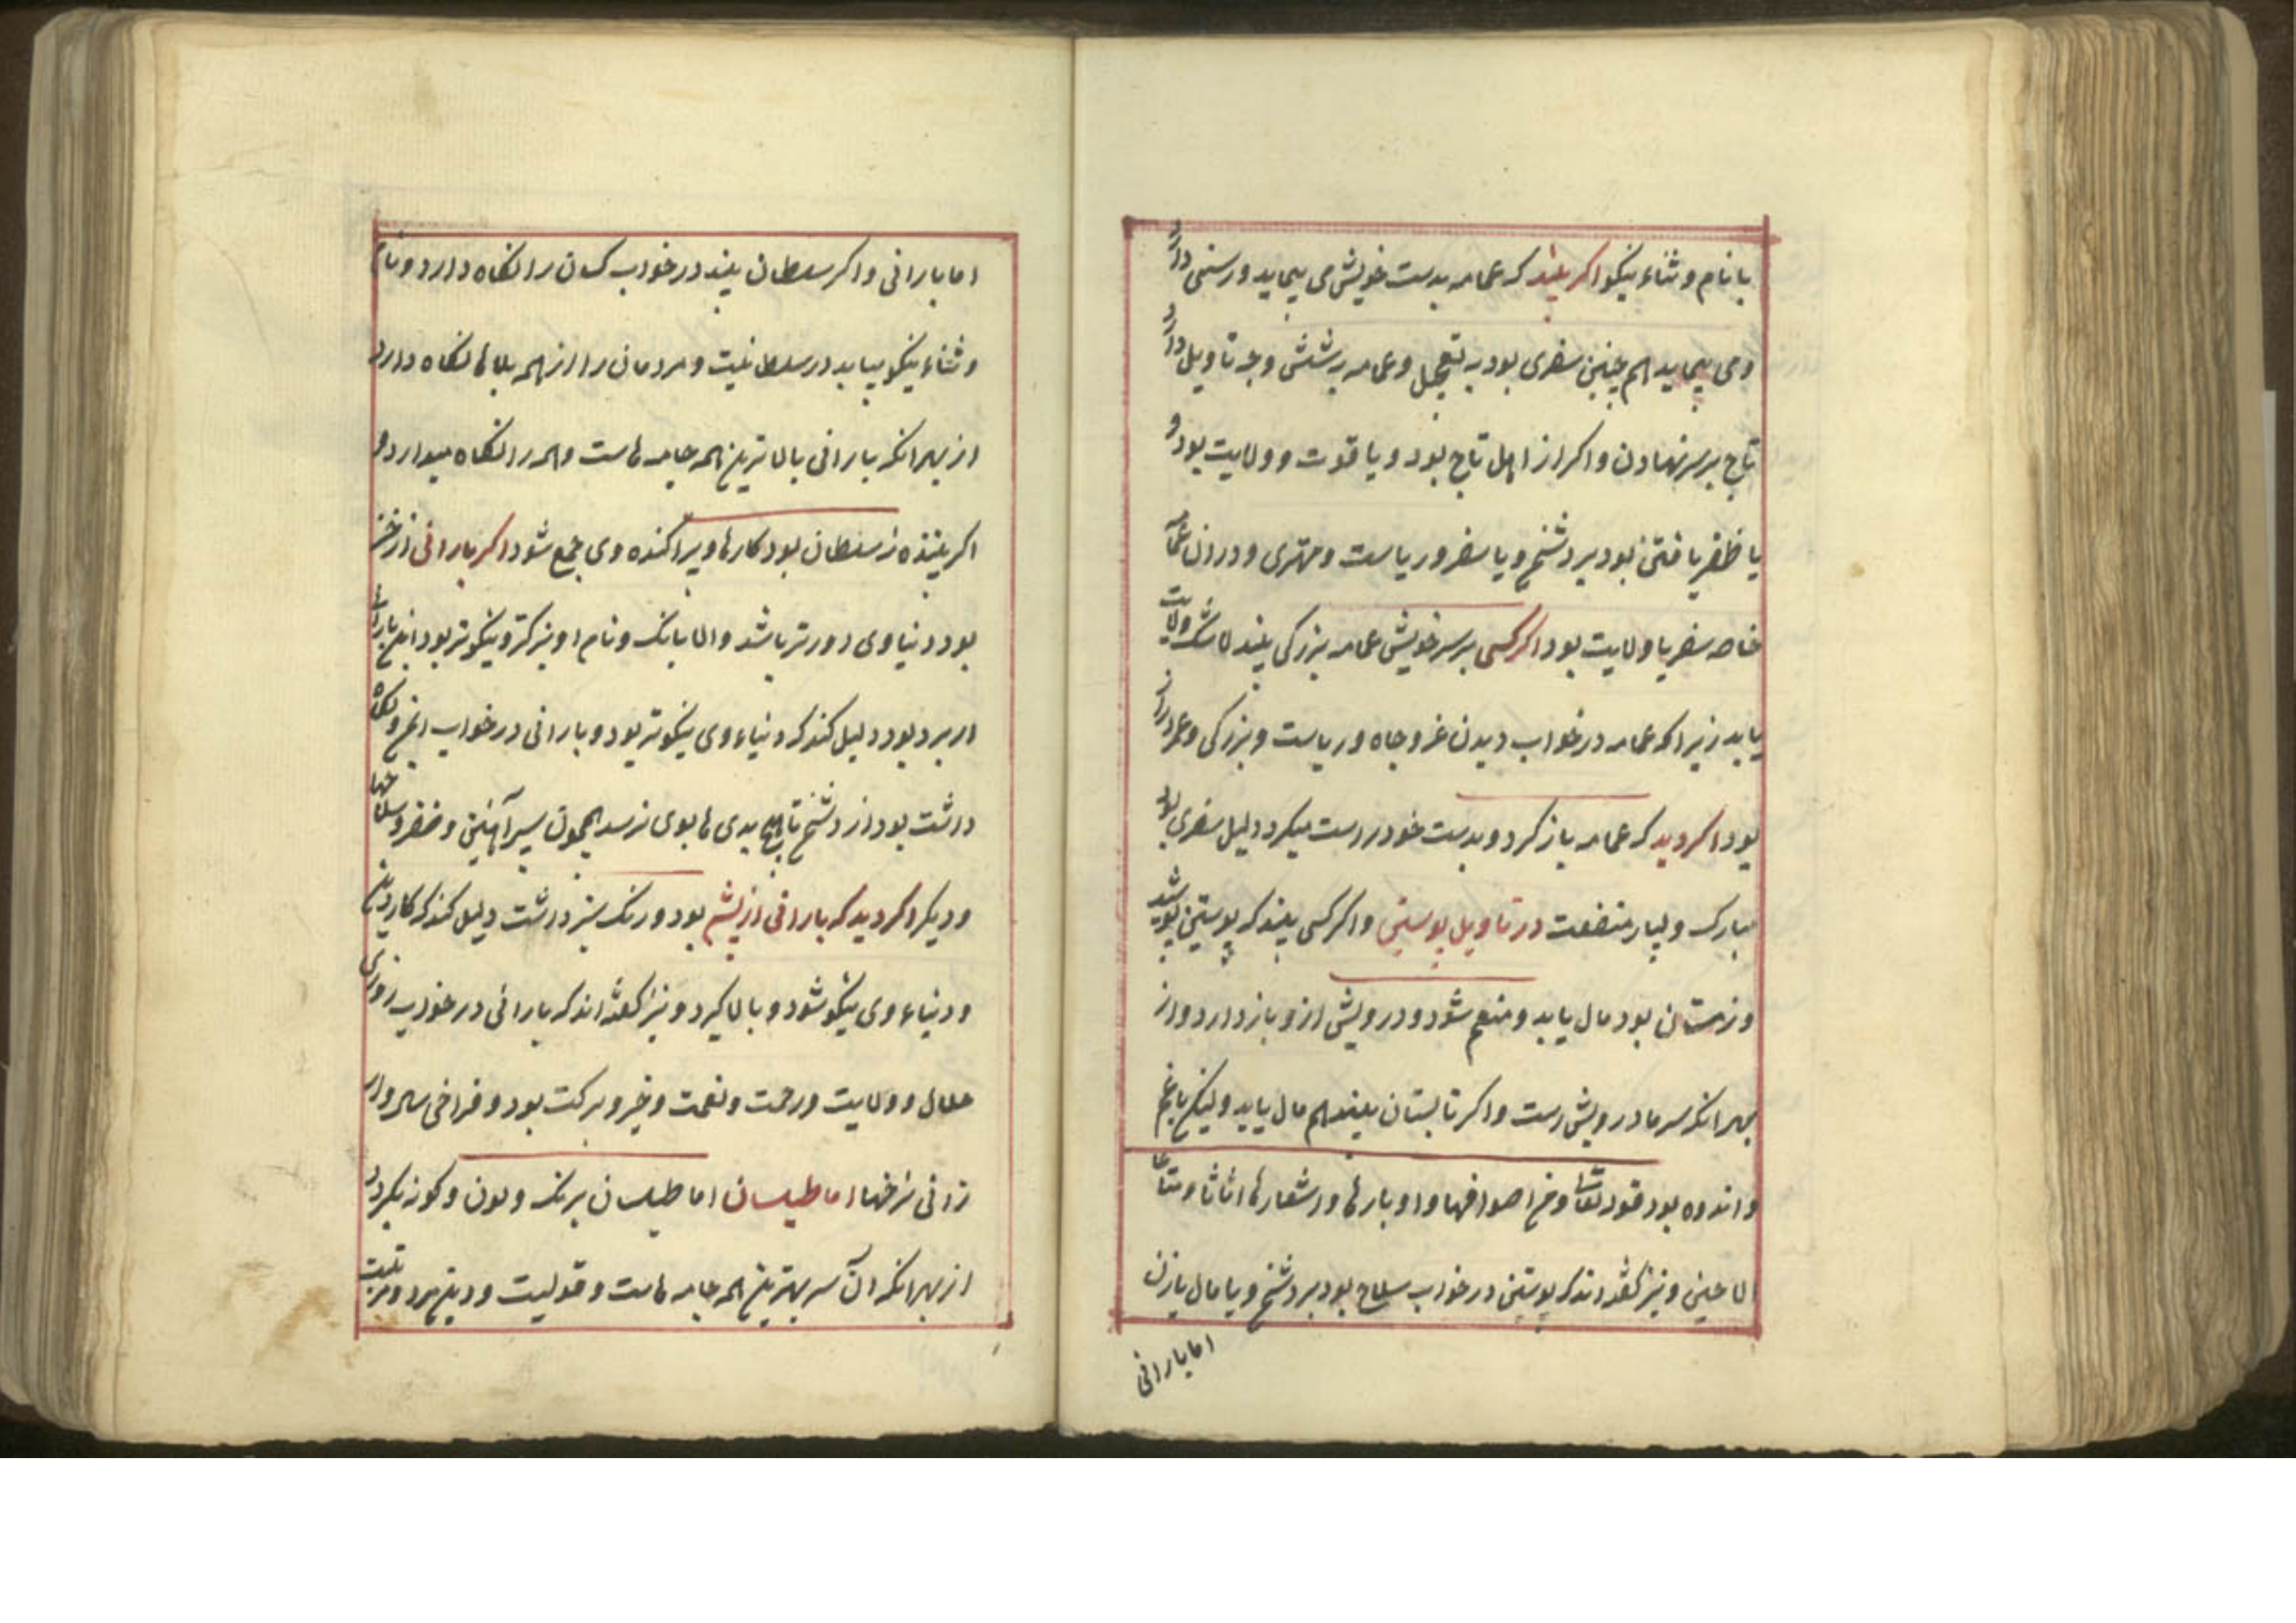 با نام و ثناء نیکو اکر بیند که عمامه بدست خویش می پیماید ورسنی دارد
و می پیماید همچنین سفری بود به تعجیل و عمامه بر شش وجه تاویل دارد
تاج بر سر نهادن و اکر از اهل تاج بود و یا قوت و ولایت بود و
یا ظفر یافتن بود بر دشمن و یا سفر و ریاست و مهتری و درازن عمامه
خاصه سفر یا ولایت بود اکر کسی بر سر خویش عمامه بزرکی بیند لاشک ولایت
یابد زیرا که عمامه در خواب دیدن عز و جاه و ریاست و بزرکی و عمر دراز
بود اکر دید که عمامه باز کرد و بدست خود راست میکرد دلیل سفری بود
مبارک و بسیار منفعت در تاویل پوستین و اکر کسی بیند که پوستین پوشید
و زمستان بود مال یابد و منعم شود و درویشی ازو باز دارد و از
بهر آنکه سرما درویش است و اکر تابستان بیند هم مال یابد ولیکن با غم
و اندوه بود قوله تعالی و من اصوافها و اوبارها و اشعارها اثاثا و متاعا
الا حین و نیز کفته اند که پوستین در خواب سلاح بود بر دشمن و یا مال یا زن
اما بارانی
اما بارانی و اکر سلطان بیند در خواب کسان را نکاه دارد و نام
و ثناء نیکو بیابد در سلطانیت و مردمان را از همه بلاها نکاه دارد
از بهر آنکه بارانی بالاترین همه جامه هاست و همه را نکاه میدارد و
اکر بیننده نه سلطان بود کارها و پراکنده وی جمع شود اکر بارانی از خز
بود دنیا وی دورتر باشد والا بانک و نام او بزرکتر و نیکوتر بود این بارانی
ار برد بود دلیل کند که دنیاء وی نیکوتر بود و بارانی در خواب ایمن و نکاه
داشت بود از دشمن تا هیچ بدی ها بوی نرسد همچون سپر آهنین و خفر و سلاحها
و دیکر اکر دید که بارانی از پشم بود و رنک سبز داشت دلیل کند که کار دین
و دنیاء وی نیکو شود و بالا کیرد و نیز کفته اند که بارانی در خواب روزی
حلال و ولایت و رحمت و نعمت و خیر و برکت بود و فراخی سال و ار
زانی نرخها اما طیلسان اما طیلسان برنک و لون و کونه بکردد
از بهر آنکه آن سر بهترین همه جامه هاست و قولیت و دین مرد و مرتبت